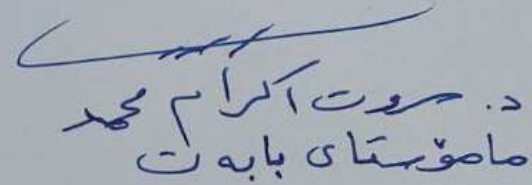 د. سروت اکرام محمد
مامۆستای بابەت